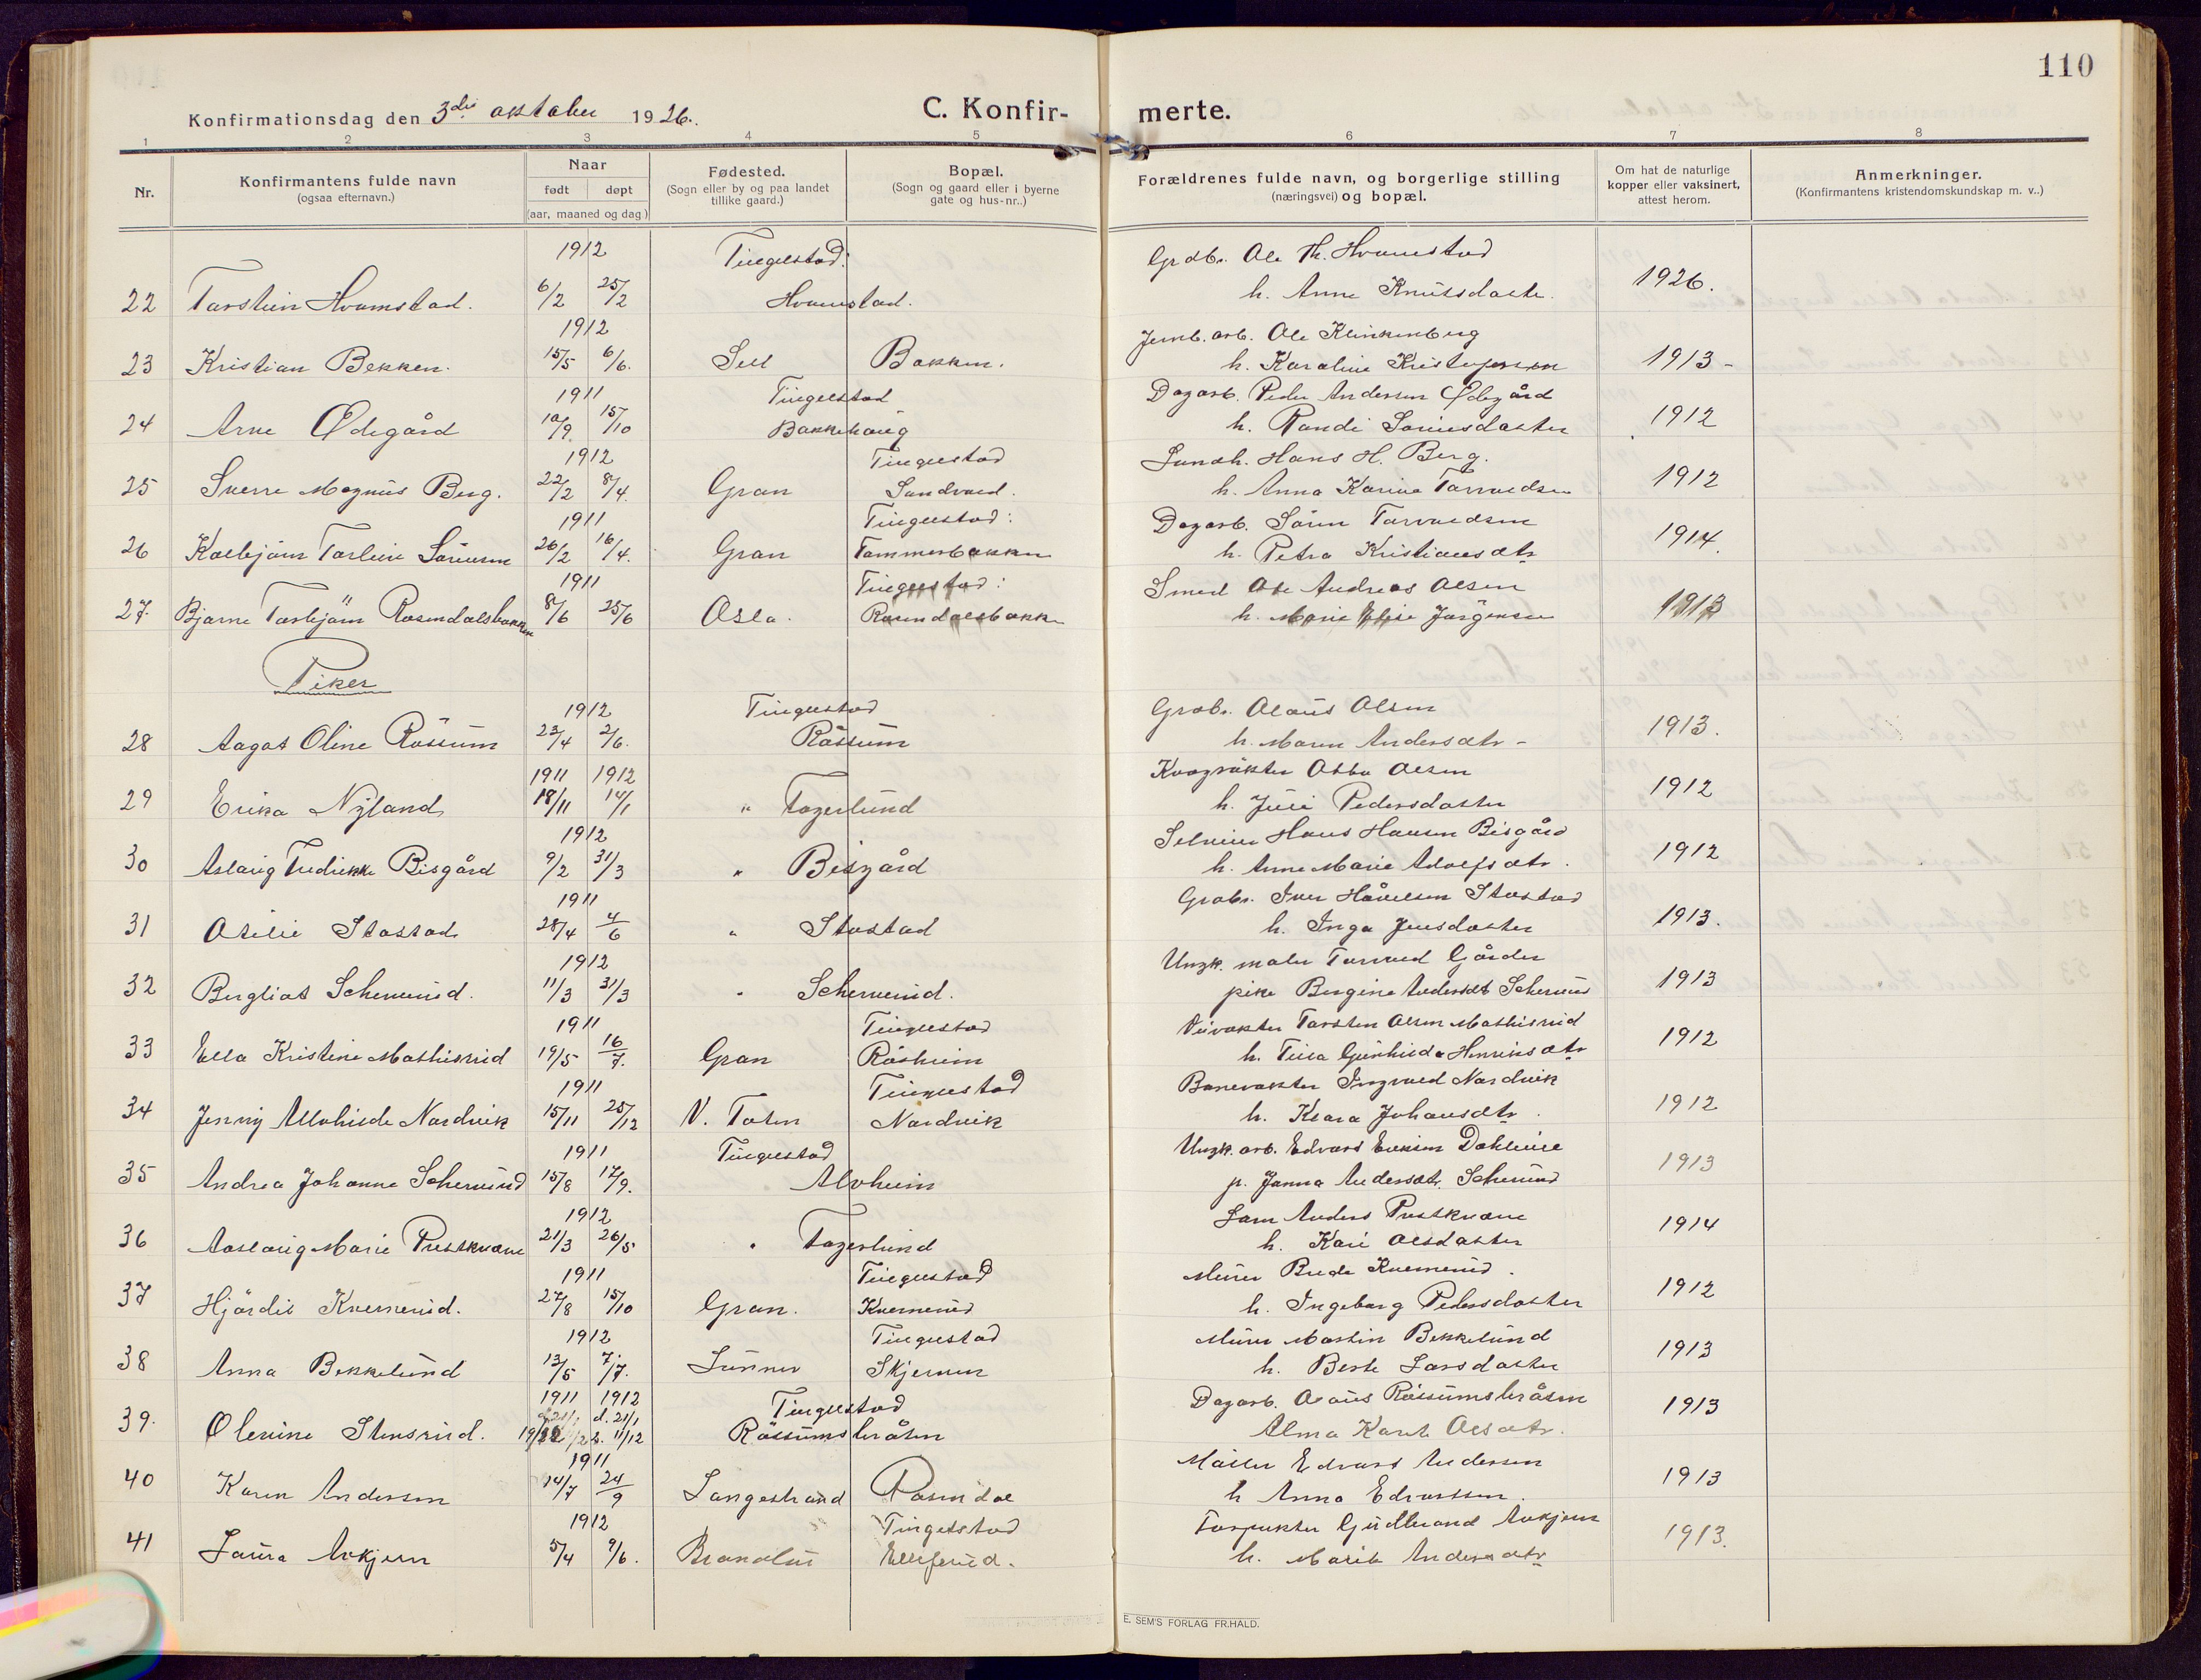 110
Konfirmationsdag den 3die oktober 1926.
C. Konfir-
merte.
1 2 3 4 5 6 7 8
Nr.
Konfirmantens fulde navn
(ogsaa efternavn.)
Naar
født døpt
(aar, maaned og dag)
Fødested.
(Sogn eller by og paa landet
tillike gaard.)
Bopæl.
(Sogn og gaard eller i byerne
gate og hus-nr..)
Forældrenes fulde navn, og borgerlige stilling
(næringsvei) og bopæl.
Om hat de naturlige
kopper eller vaksinert,
attest herom.
Anmerkninger.
(Konfirmantens kristendomskundskap m. v..)
1912 Tingelstad: Grdbr. Ole Th. Hvamstad
22 Torstein Hvamstad. 6/2 25/2 Hvamstad. h. Anne Knutsdatter. 1926.
1912 Jernb. arb. Ole Klinkenberg
23 Kristian Bekken. 15/5 6/6. Sell Bakken. h. Karoline Kristofersen 1913 -
1911 Tingelstad Dagarb. Peder Andersen Ødegård
24 Arne Ødegård 10/9. 15/10 Bakkehaug h. Randi Sørensdatter 1912
1912 Tingelstad Landh. Hans H. Berg.
25 Sverre Magnus Berg. 22/2 8/4. Gran Sandvold. h. Anna Karine Torvaldsen 1912
1911 Tingelstad: Dagarb. Sören Torvaldsen
26 Kolbjörn Torleiv Sörensen 26/2 16/4. Gran Tømmerbakken h. Petra Kristiansdtr 1914.
1911 Tingelstad: Smed Ole Andreas Olsen
27. Bjarne Torbjörn Rosendalsbakken 8/6 25/6 Oslo. Rosendalsbakken h. Marie Elise Jørgensen 1913
Piker
1912 Tingelstad Grdbr. Olaus Olsen
28 Aagot Oline Røssum 23/4 2/6. Røssum h. Maren Andersdtr - 1913.
1911 1912 Kvægrøkter Otto Olsen
29 Erika Nyland 18/11 14/1 " Fagerlund h. Juli Pedersdatter 1912
1912 Selveier Hans Hansen Bisgård
30 Aslaug Fredrikke Bisgård 9/2 31/3 " Bisgård h. Anne Marie Adolfsdtr. 1912
1911 Grdbr. Iver Håvelsen Stastad
31 Otilie Stastad 28/4 4/6 " Stastad h. Inga Jensdatter 1913.
1912 Ungk. maler Torvald Gårder
32 Bergliot Schererud. 11/3 31/3 " Schererud. pike Bergine Andersdt Schererud 1913
1911 Tingelstad Veivokter Torsten Olsen Mathisrud
33 Ella Kristine Mathisrud 19/5 16/7. Gran Røsheim h. Tilla Gunhilda Henriksdtr 1912
1911 Tingelstad Banevokter Ingvald Nordvik
34 Jenny Alvhilde Nordvik 15/11 25/12 V. Toten Nordvik h. Klara Johansdtr. 1912
1911 Tingelstad Ungk. arb. Edvard Eriksen Dahlene
35 Andrea Johanne Schererud 15/8 17/9. Alvheim p. Janna Andersdtr. Schererud 1913
1912 Lars Anders Prestkvern
36 Aaslaug Marie Prestkvern 21/3 26/5 " Fagerlund h. Kari Olsdatter 1914
1911 Tingelstad Murer Brede Kvernerud.
37 Hjördis Kvernerud. 27/8 15/10 Gran. Kvernerud h. Ingeborg Pedersdatter 1912
1912 Tingelstad Murer Martin Bekkelund
38 Anna Bekkelund 13/5 7/7. Lunner Skjerven h. Berte Larsdatter 1913
1911 1912 Tingelstad Dagarb. Olaus Røssumsbråten
39. Olenine Stensrud. d. 21/1 b. 11/12 Røssumsbråten Alma Karite Olsdtr. 1913
1911 Møller Edvard Andersen
40 Karen Andersen 14/7 24/9 Langestrand Rosendal h Anna Edvardsen. 1913
1912 Tingelstad Torpvokter Gudbrand Askjum
41 Laura Askjum 5/4 9/6. Brandbu Ellefsrud. h. Marit Andersdtr 1913.
E. SEM'S FORLAG FR.HALD.